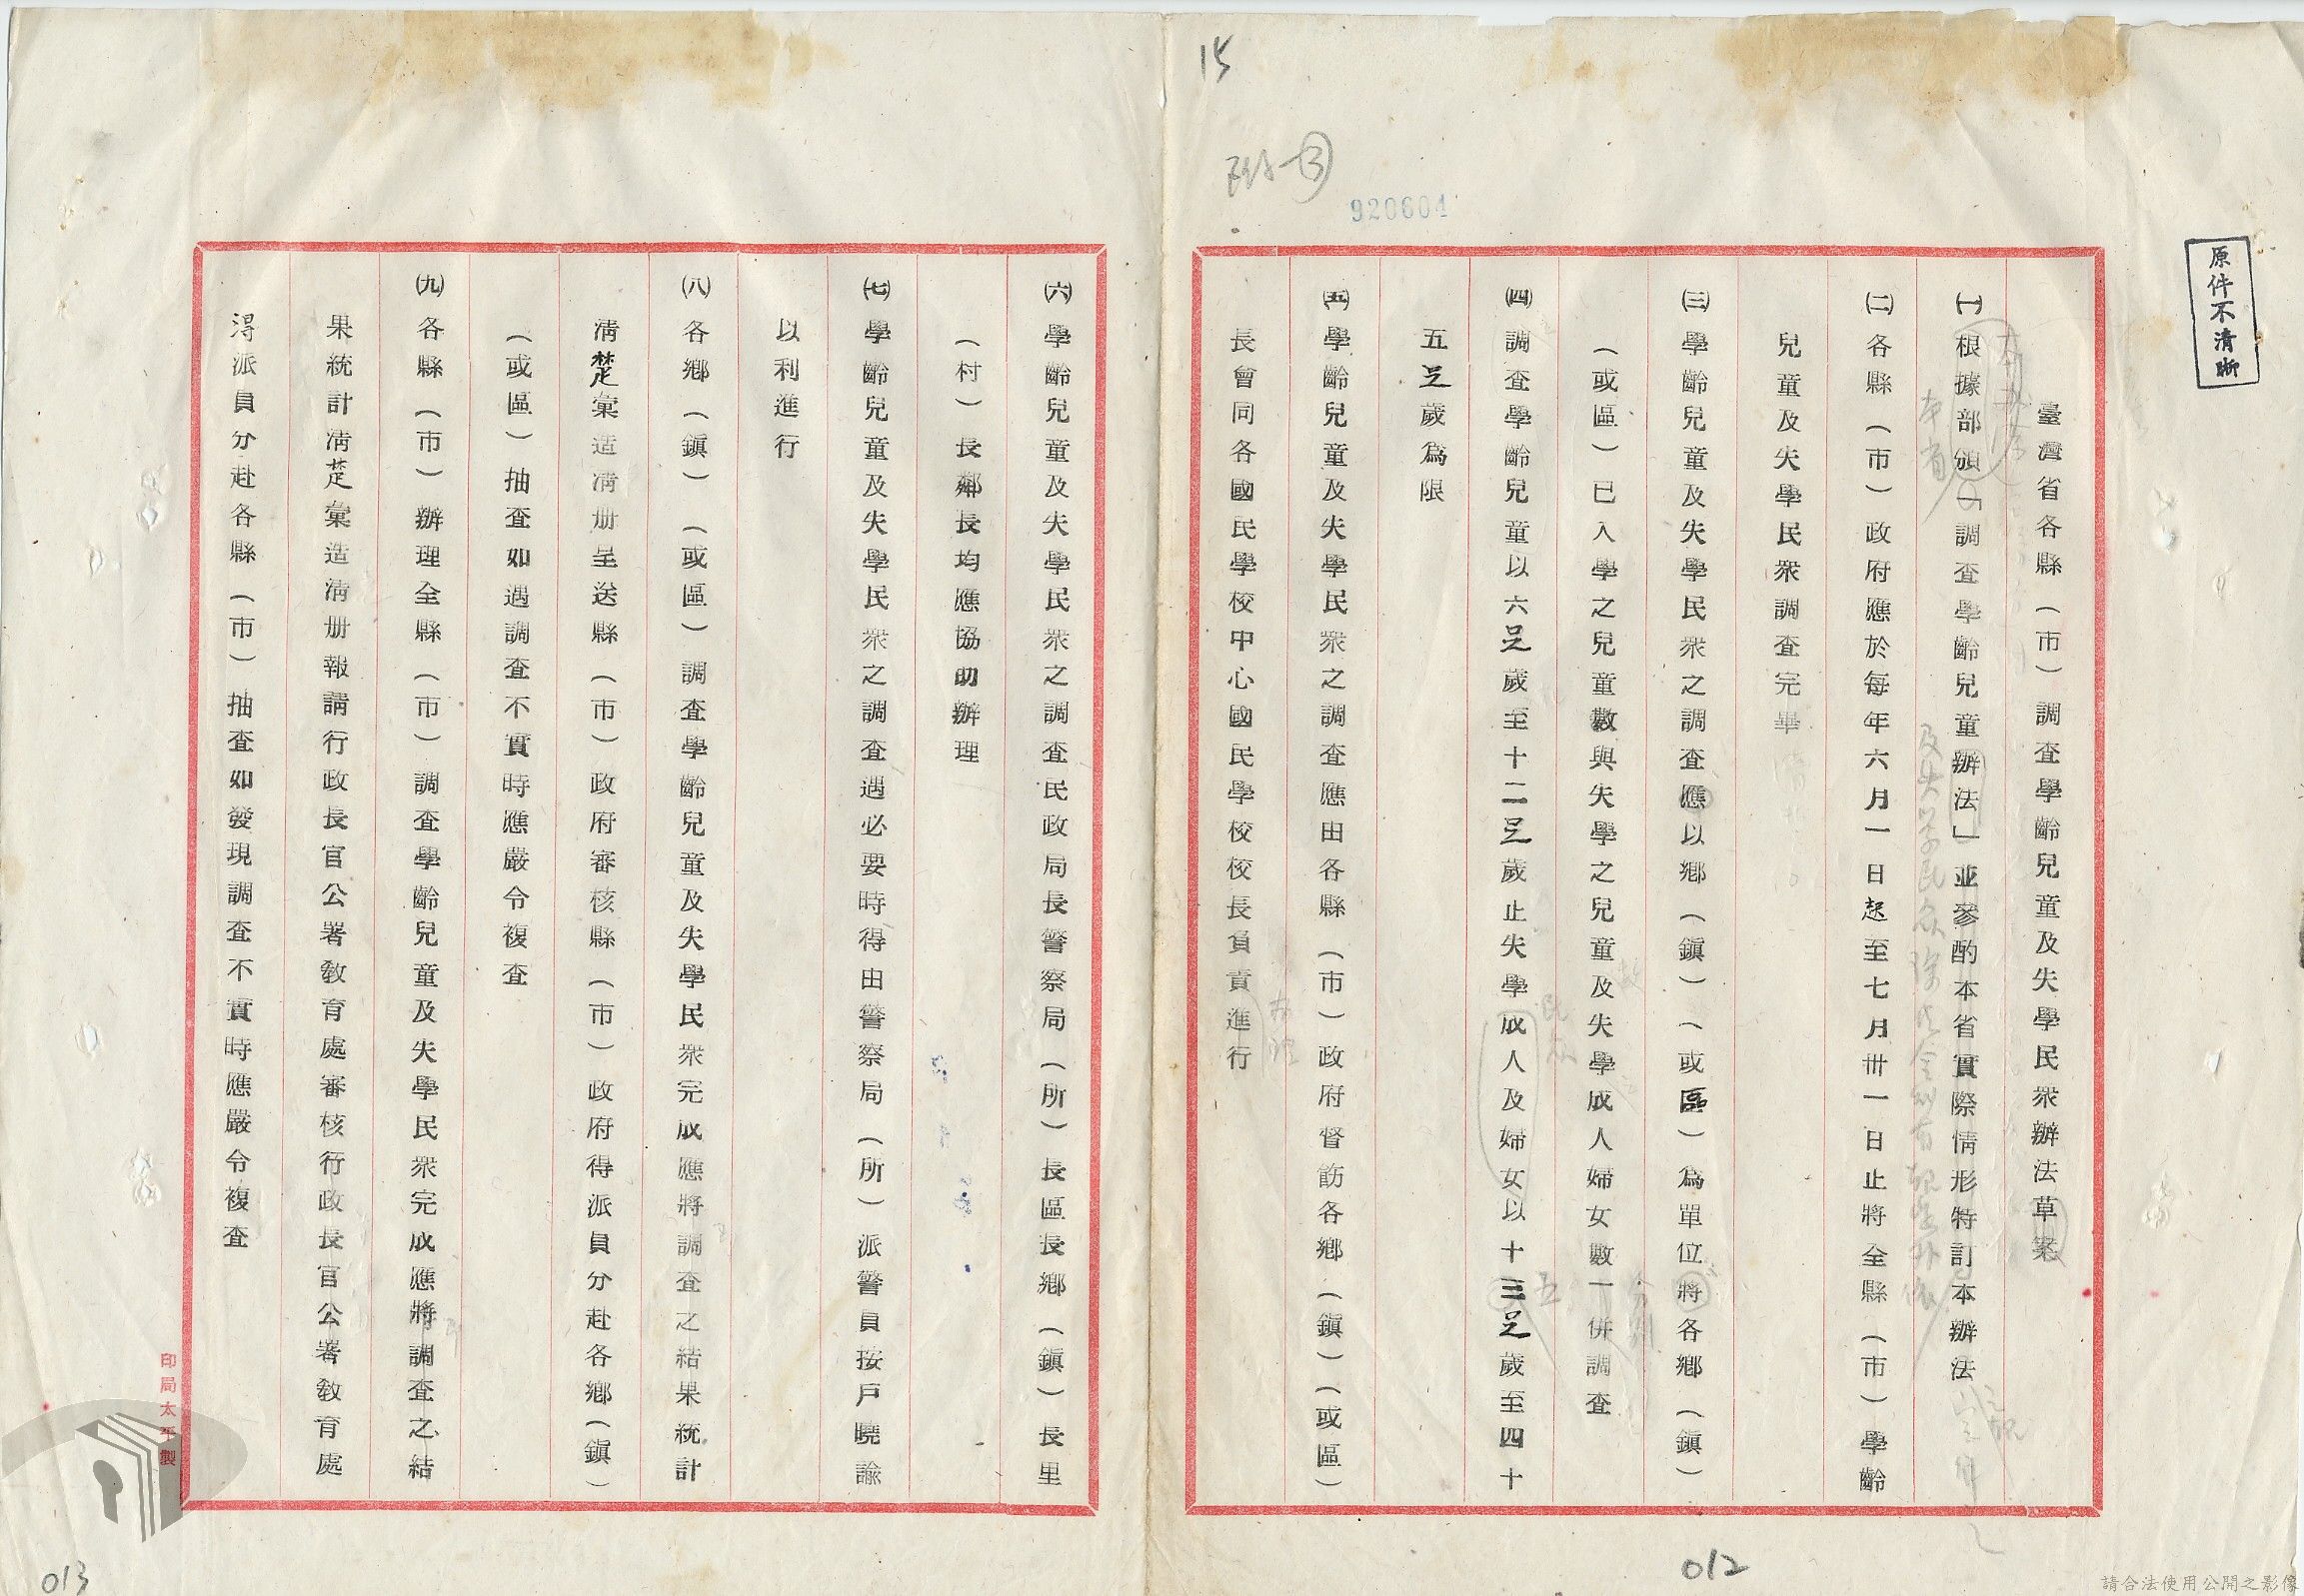 15
附
920604
原件不清晰
臺灣省各縣（市）調查學齡兒童及失學民眾辦法草案
㈠根據部頒「調查學齡兒童辦法」並參酌本省實際情形特訂本辦法
本省
及失學民眾除法令別有規定外依
㈡各縣（市）政府應於每年六月一日起至七月卅一日止將全縣（市）學齡
兒童及失學民眾調查完畢
㈢學齡兒童及失學民眾之調查應以鄉（鎮）（或區）為單位將各鄉（鎮）
（或區）已入學之兒童數與失學之兒童及失學成人婦女數一併調查
分別
㈣調查學齡兒童以六足歲至十二足歲止失學成人及婦女以十三足歲至四十
民眾
五
五足歲爲限
㈤學齡兒童及失學民眾之調查應由各縣（市）政府督飭各鄉（鎮）（或區）
長會同各國民學校中心國民學校校長負責進行
辦理
㈥學齡兒童及失學民眾之調查民政局長警察局（所）長區長鄉（鎮）長里
（村）長鄰長均應協助辦理
㈦學齡兒童及失學民眾之調查遇必要時得由警察局（所）派警員按戶曉諭
以利進行
㈧各鄉（鎮）（或區）調查學齡兒童及失學民眾完成應將調查之結果統計
清楚彙造清册呈送縣（市）政府審核縣（市）政府得派員分赴各鄉（鎮）
（或區）抽查如遇調查不實時應嚴令複查
㈨各縣（市）辦理全縣（市）調查學齡兒童及失學民眾完成應將調查之結
果統計清楚彙造清册報請行政長官公署教育處審核行政長官公署教育處
得派員分赴各縣（市）抽查如發現調查不實時應嚴令複查
印局太平製
012
013
請合法使用公開之影像